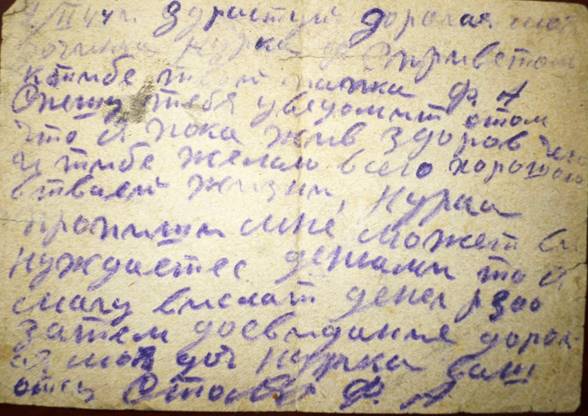 /III 44 г. Здрастуй дорогая моя
дочинка Нурка с приветом
к тибе твой папка Ф. А
Спешу тебя уведомит отом
что Я пока жив здоров чего
и тибе желаю всего хорошого
втвоей жизни, Нурка
пропиши мне может в
нуждаетес денгами то Я
смагу выслат денег р 300
Затем досвидание дорог
ая моя доч Нурка ваш
отец Ф. А